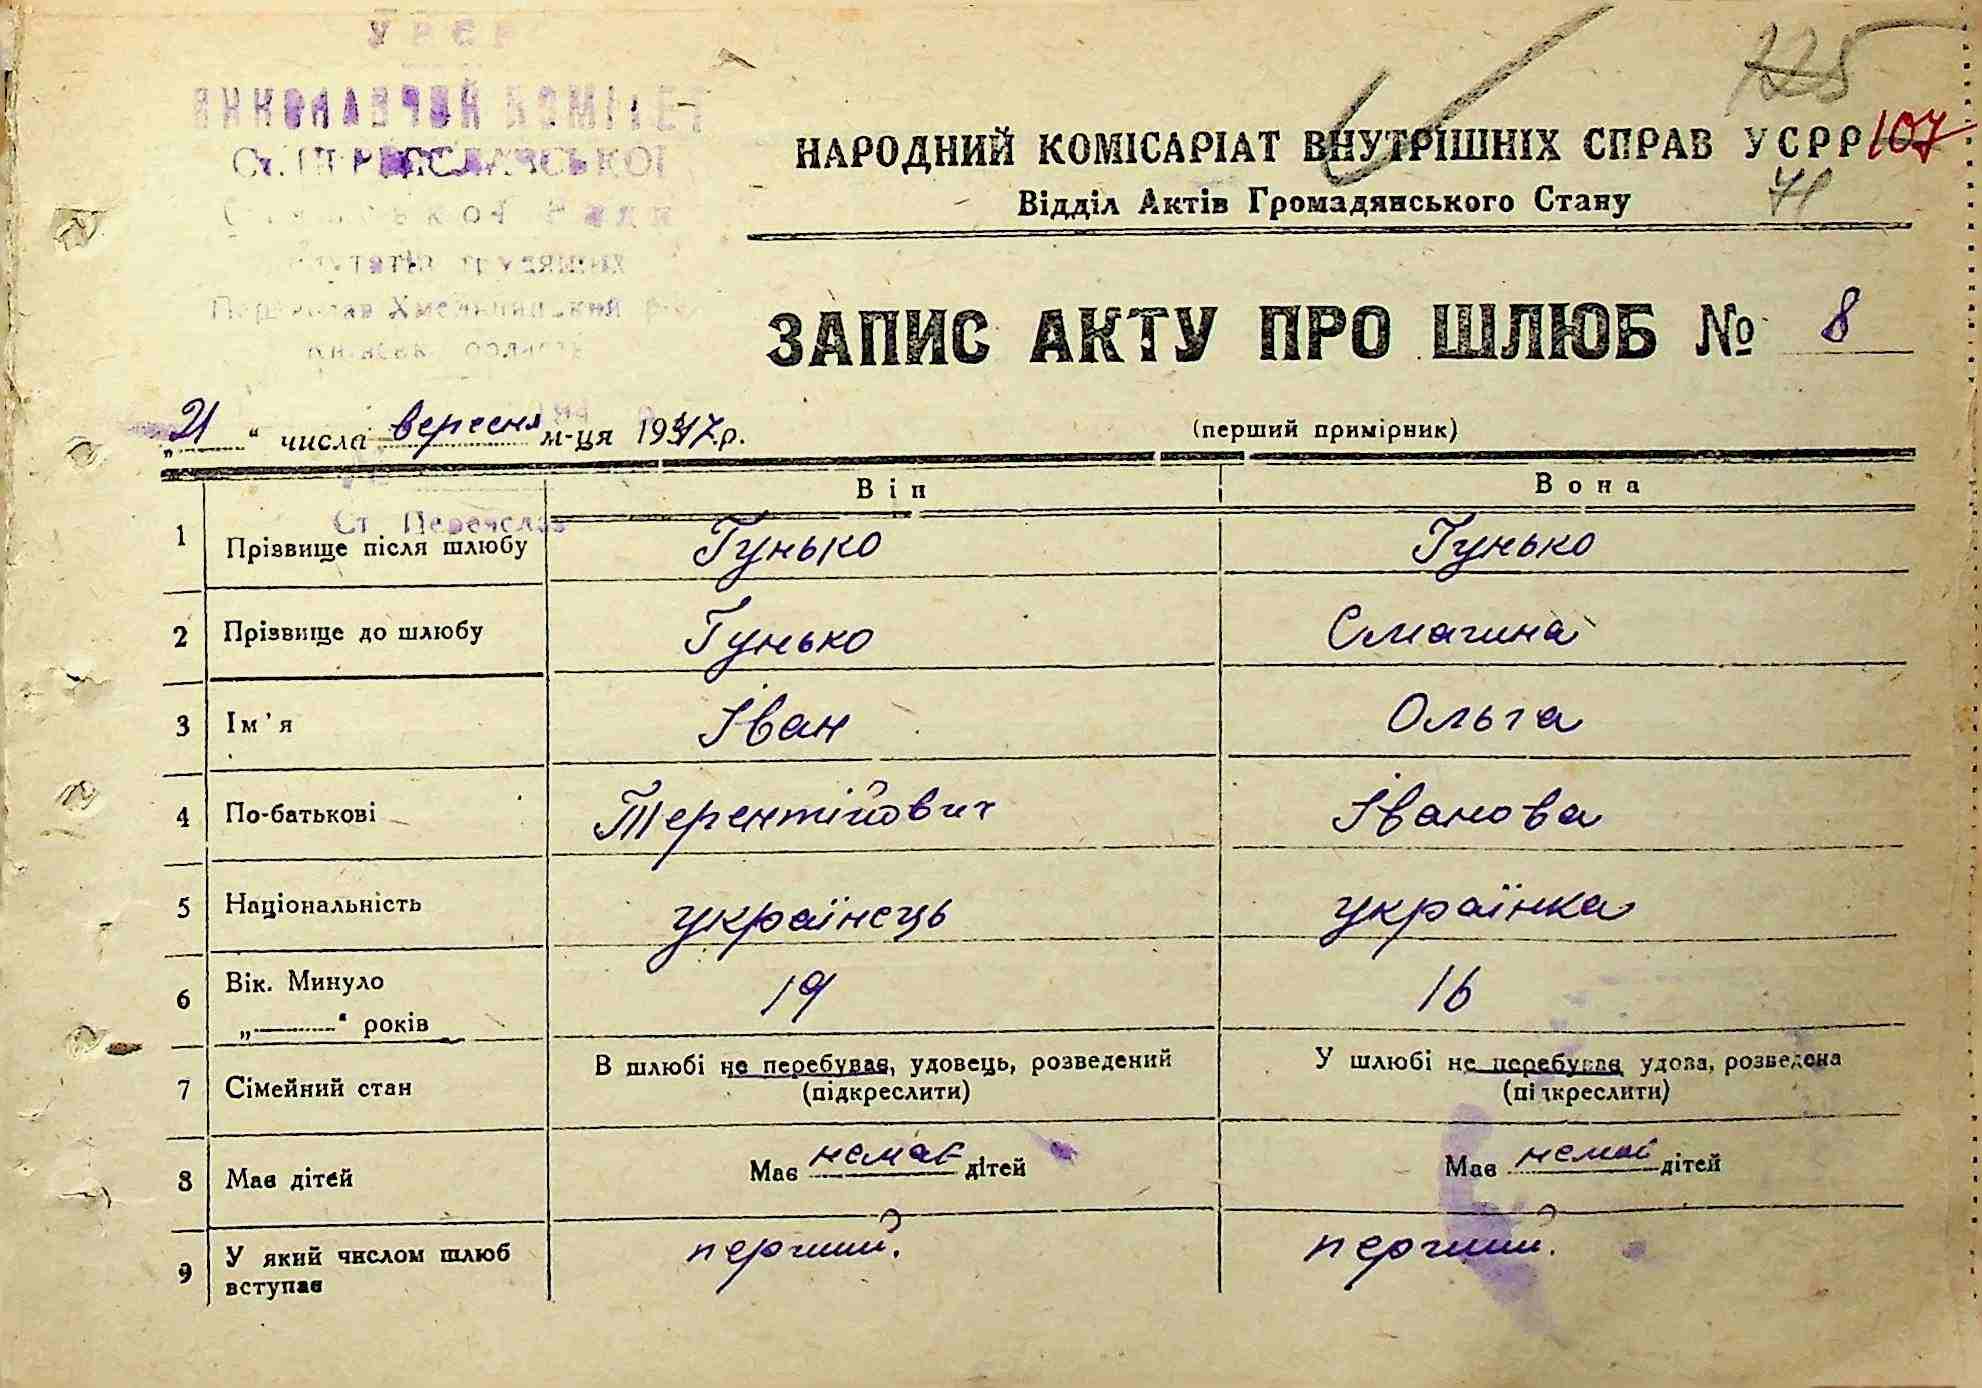 УРСР
ВИКОНАВЧИЙ КОМІТЕТ
Ст. ПЕРЕЯСЛАВСЬКОЇ
Сільської Ради
депутатів трудящих
Переяслав Хмельницький р-н
Київськ. області
125
107
71
НАРОДНИЙ КОМІСАРІАТ ВНУТРІШНІХ СПРАВ УСРР
Відділ Актів Громадянського Стану
ЗАПИС АКТУ ПРО ШЛЮБ № 8
„21“ числа вересня м-ця 1947 р.
(перший примірник)
Ст. Переяслав
Він Вона
1 Прізвище після шлюбу Гунько Гунько
2 Прізвище до шлюбу Гунько Смагина
3 Ім'я Іван Ольга
4 По-батькові Терентійович Іванова
5 Національність українець українка
6 Вік. Минуло 19 16
„———“ років
7 Сімейний стан В шлюбі не перебував, удовець, розведений У шлюбі не перебував, удова, розведена
(підкреслити) (підкреслити)
8 Має дітей Має немає дітей Має немає дітей
9 У який числом шлюб перший. перший.
вступає